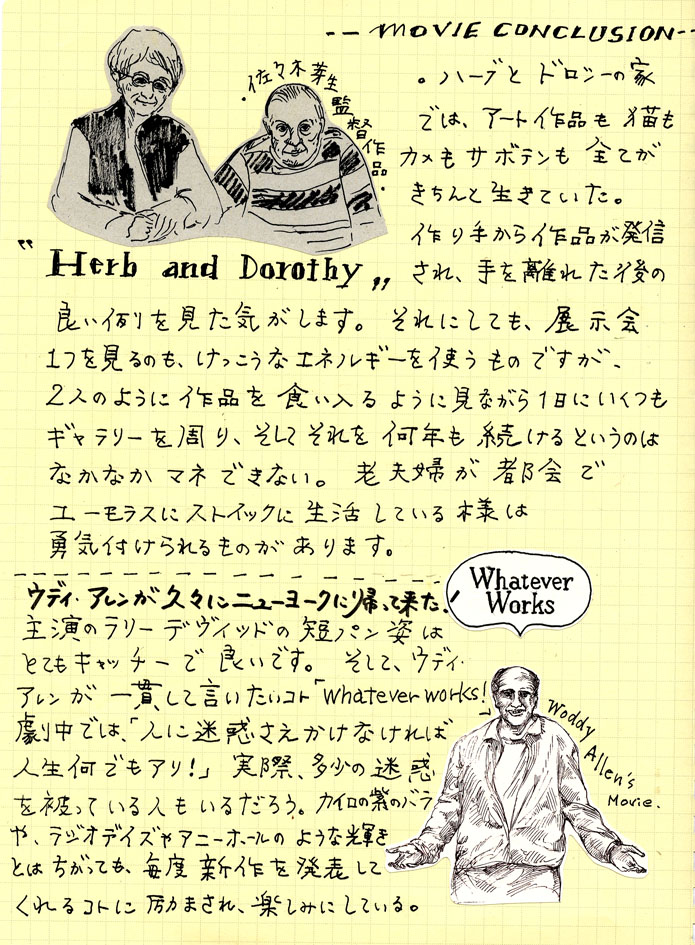 -- MOVIE CONCLUSION --
・佐々木芽生監督作品・
"Herb and Dorothy"
。ハーブと ドロシーの家
では、アート作品も 猫も
カメもサボテンも 全てが
きちんと生きていた。
作り手から作品が発信
され、手を離れた後の
良い例を見た気がします。 それにしても、展示会
1つを見るのも、けっこうなエネルギーを使うものですが、
2人のように作品を 食い入るように見ながら1日にいくつも
ギャラリーを周り、そしてそれを 何年も続けるというのは
なかなかマネできない。 老夫婦が 都会で
ユーモラスにストイックに 生活している様は
勇気付けられるものがあります。
ウディ・アレンが久々にニューヨークに帰って来た!
Whatever
Works
主演のラリーデヴィッドの短パン姿は
とてもキャッチーで良いです。 そして、ウディ・
アレンが 一貫して言いたいコト「whatever works!」
劇中では、「人に迷惑さえかけなければ
人生何でもアリ!」 実際、多少の迷惑
を被っている人もいるだろう。カイロの紫のバラ
や、ラジオデイズやアニーホールのような輝き
とはちがっても、毎度新作を発表して
くれるコトに励まされ、楽しみにしている。
Woddy
Allen's
Movie.